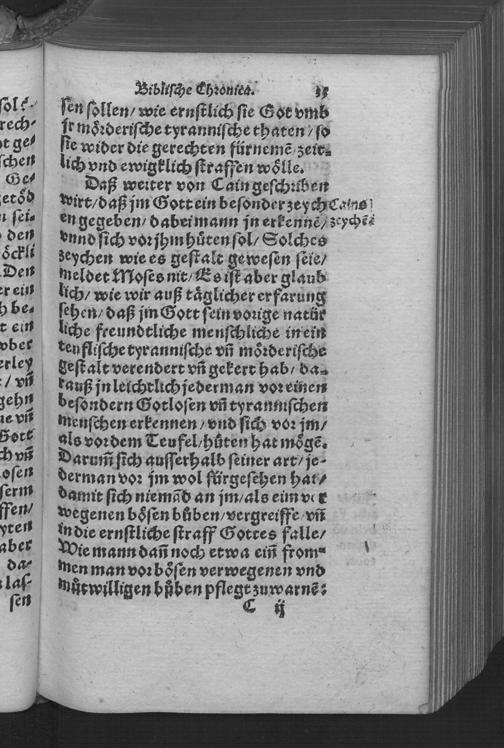 Biblische Chronica. 35
sen sollen/ wie ernstlich sie Got vmb
jr mörderische tyrannische thaten/ so
sie wider die gerechten fürnemẽ/ zeit⸗
lich vnd ewigklich straffen wölle.
Daß weiter von Cain geschriben
wirt/ daß jm Gott ein besonder zeych
Cains
en gegeben/ dabei mann jn erkennẽ/
zeychẽ
vnnd sich vor jhm hüten sol/ Solches
zeychen wie es gestalt gewesen seie/
meldet Moses nit/ Es ist aber glaub
lich/ wie wir auß täglicher erfarung
sehen/ daß jm Gott sein vorige natür
liche freundtliche menschliche in ein
teuflische tyrannische vñ mörderische
gestalt verendert vñ gekert hab/ da⸗
rauß jn leichtlich jederman vor einen
besondern Gotlosen vñ tyrannischen
menschen erkennen/ vnd sich vor jm/
als vor dem Teufel/ hüten hat mögẽ.
Darum̃ sich ausserhalb seiner art/ je⸗
derman vor jm wol fürgesehen hat/
damit sich niemãd an jm/ als eim ver
wegenen bösen büben/ vergreiffe/ vñ
in die ernstliche straff Gottes falle/
Wie mann dañ noch etwa eiñ from⸗
men man vor bösen verwegenen vnd
mütwilligen büben pflegt zuwarnẽ:
C ij
sol
rech⸗
ot ge⸗
schen
Ge⸗
getöd
sei⸗
den
öckli
Den
er ein
h be⸗
t ein
vber
erley
/ vñ
gehn
ne vñ
Gott
ch vñ
osen
serm
ffen/
yten
aber
da⸗
las⸗
sen